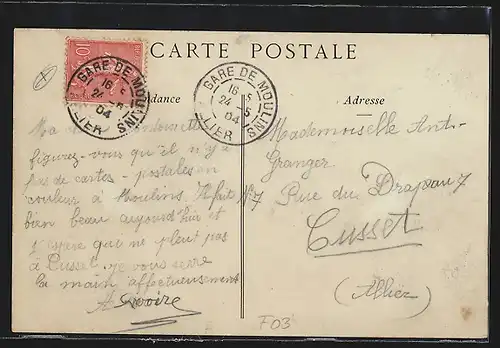 CARTE POSTALE
10
GARE DE MOULINS
16 5
24 5
04
ALLIER
GARE DE MOULINS
16 5
24 5
04
ALLIER
dance
Adresse
Ma
figurez-vous qu'il n'y a
pas de cartes-postales en
couleur à Moulins Il fait
bien beau aujourd'hui et
j'espère que ne pleut pas
à Cusset. Je vous serre
la main affectueusement
Mademoiselle Ant.
Granger
Rue du Drapeau 7
Cusset
(Allier)
F03